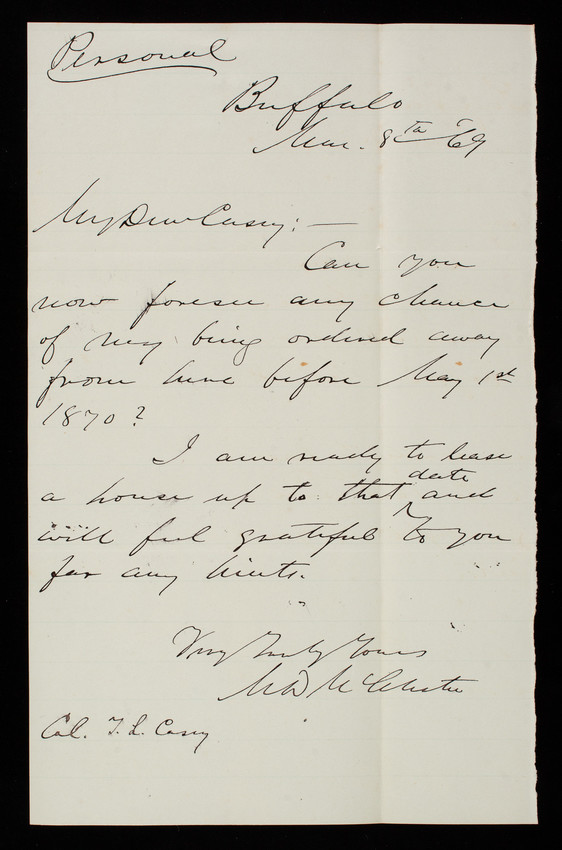 Personal
Buffalo
Mar. 8th '69
My Dear Casey: —
Can you
now foresee any chance
of my being ordered away
from here before May 1st
1870?
I am ready to lease
date
a house up to that and
will feel grateful to you
for any hints.
Very Truly Yours
M D McAlester
Col. T. L. Casey